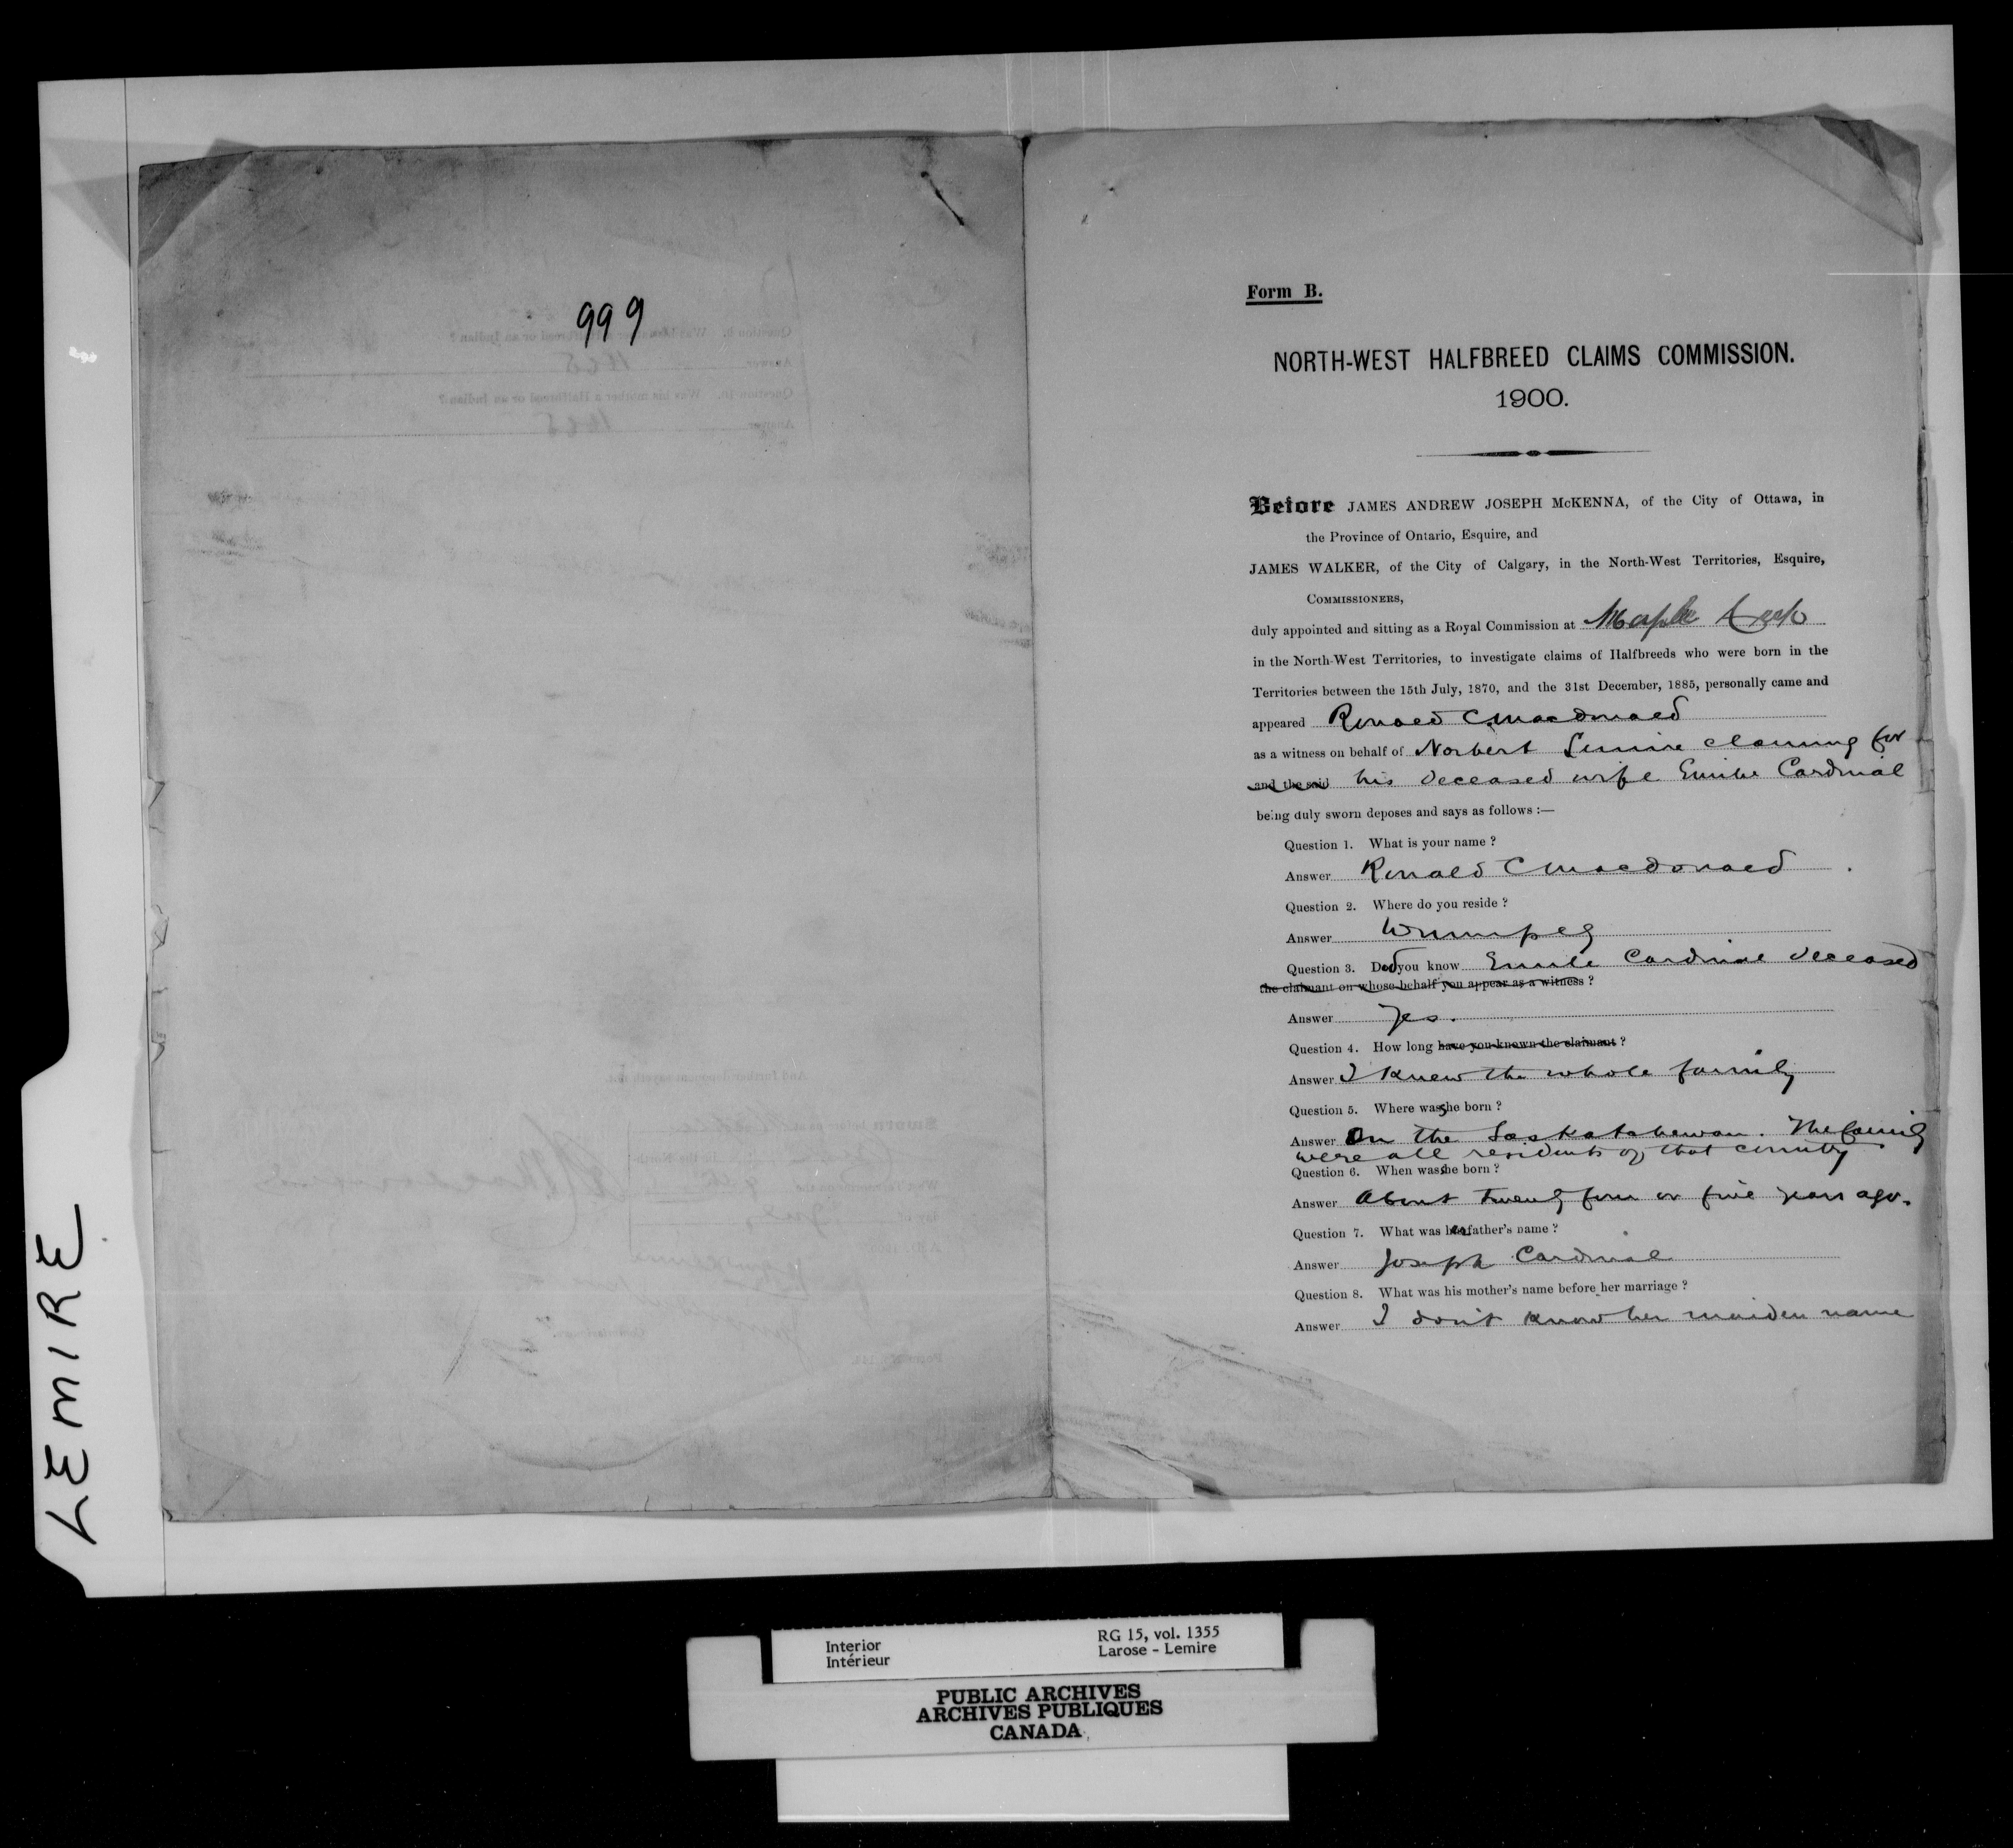 999
LEMIRE
Form B.
NORTH-WEST HALFBREED CLAIMS COMMISSION.
1900.
Before JAMES ANDREW JOSEPH McKENNA, of the City of Ottawa, in
the Province of Ontario, Esquire, and
JAMES WALKER, of the City of Calgary, in the North-West Territories, Esquire,
COMMISSIONERS,
duly appointed and sitting as a Royal Commission at Maple Creek
in the North-West Territories, to investigate claims of Halfbreeds who were born in the
Territories between the 15th July, 1870, and the 31st December, 1885, personally came and
appeared Ronald C Macdonald
as a witness on behalf of Norbert Lemire claiming for
and the said his deceased wife Emilie Cardinal
being duly sworn deposes and says as follows :—
Question 1. What is your name ?
Answer Ronald C Macdonald
Question 2. Where do you reside ?
Answer Winnipeg
Question 3. Did you know Emilie Cardinal deceased
the claimant on whose behalf you appear as a witness ?
Answer Yes.
Question 4. How long have you known the claimant ?
Answer I knew the whole family
Question 5. Where was she born ?
Answer On the Saskatchewan. The family
were all residents of that country
Question 6. When was she born ?
Answer About twenty four or five years ago.
Question 7. What was her father's name ?
Answer Joseph Cardinal
Question 8. What was his mother's name before her marriage ?
Answer I don't know her maiden name
Interior
Intérieur
RG 15, vol. 1355
Larose - Lemire
PUBLIC ARCHIVES
ARCHIVES PUBLIQUES
CANADA